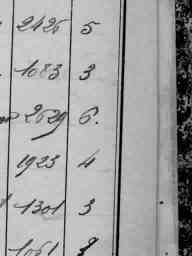 2426 5
1083 3
2629 6.
1923 4
1301 3
1061